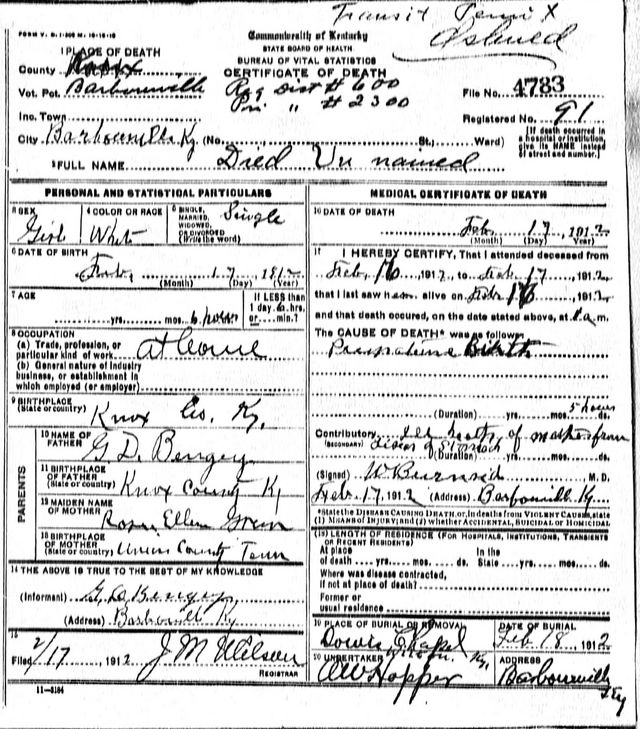 Transit Permit
FORM V. S. 1-
Commonwealth of Kentucky
STATE BOARD OF HEALTH
BUREAU OF VITAL STATISTICS
CERTIFICATE OF DEATH
1 PLACE OF DEATH
County Knox
Vot. Pct. Barbourville
Reg Dist # 600
Pri " # 2300
File No. 4783
Inc. Town
Registered No. 91
City Barbourville Ky. (No. St.; Ward)
[If death occurred in a hospital or institution, give its NAME instead of street and number.]
2 FULL NAME Died Un named
PERSONAL AND STATISTICAL PARTICULARS
3 SEX Girl
4 COLOR OR RACE White
5 SINGLE, MARRIED, WIDOWED, OR DIVORCED (Write the word) Single
6 DATE OF BIRTH Feb. 17, 1912
(Month) (Day) (Year)
7 AGE yrs. mos. 6 hours
If LESS than 1 day, 6 hrs. or min.?
8 OCCUPATION
(a) Trade, profession, or particular kind of work At home
(b) General nature of industry business, or establishment in which employed (or employer)
9 BIRTHPLACE (State or country) Knox Co. Ky.
PARENTS
10 NAME OF FATHER G. D. Bengey
11 BIRTHPLACE OF FATHER (State or country) Knox County Ky
12 MAIDEN NAME OF MOTHER Ellen
13 BIRTHPLACE OF MOTHER (State or country) Union County Tenn
14 THE ABOVE IS TRUE TO THE BEST OF MY KNOWLEDGE
(Informant) G. D. Bengey
(Address) Barbourville Ky
15
Filed 2/17, 1912 J M Wilson
REGISTRAR
11-3184
MEDICAL CERTIFICATE OF DEATH
16 DATE OF DEATH Feb. 17, 1912
(Month) (Day) (Year)
17 I HEREBY CERTIFY, That I attended deceased from
Feb, 16 1912, to Feb. 17, 1912,
that I last saw h alive on Feb 16, 1912,
and that death occured, on the date stated above, at a.m.
The CAUSE OF DEATH* was as follows:
Premature Birth
(Duration) yrs. mos. 5 hours ds.
Contributory Ill health of mother from
(SECONDARY) of Stomach
(Duration) yrs. mos. ds.
(Signed) W Burnside M. D.
Feb. 17, 1912 (Address) Barbourville Ky.
*State the DISEASE CAUSING DEATH, or, in deaths from VIOLENT CAUSES, state
(1) MEANS OF INJURY; and (2) whether ACCIDENTAL, SUICIDAL or HOMICIDAL
(18) LENGTH OF RESIDENCE (FOR HOSPITALS, INSTITUTIONS, TRANSIENTS OR RECENT RESIDENTS)
At place of death yrs. mos. ds. In the State yrs. mos. ds.
Where was disease contracted,
if not at place of death?
Former or
usual residence
19 PLACE OF BURIAL OR REMOVAL
DATE OF BURIAL
Chapel Ky.
Feb 18, 1912
20 UNDERTAKER
ADDRESS
AW Hopper
Barbourville
Ky